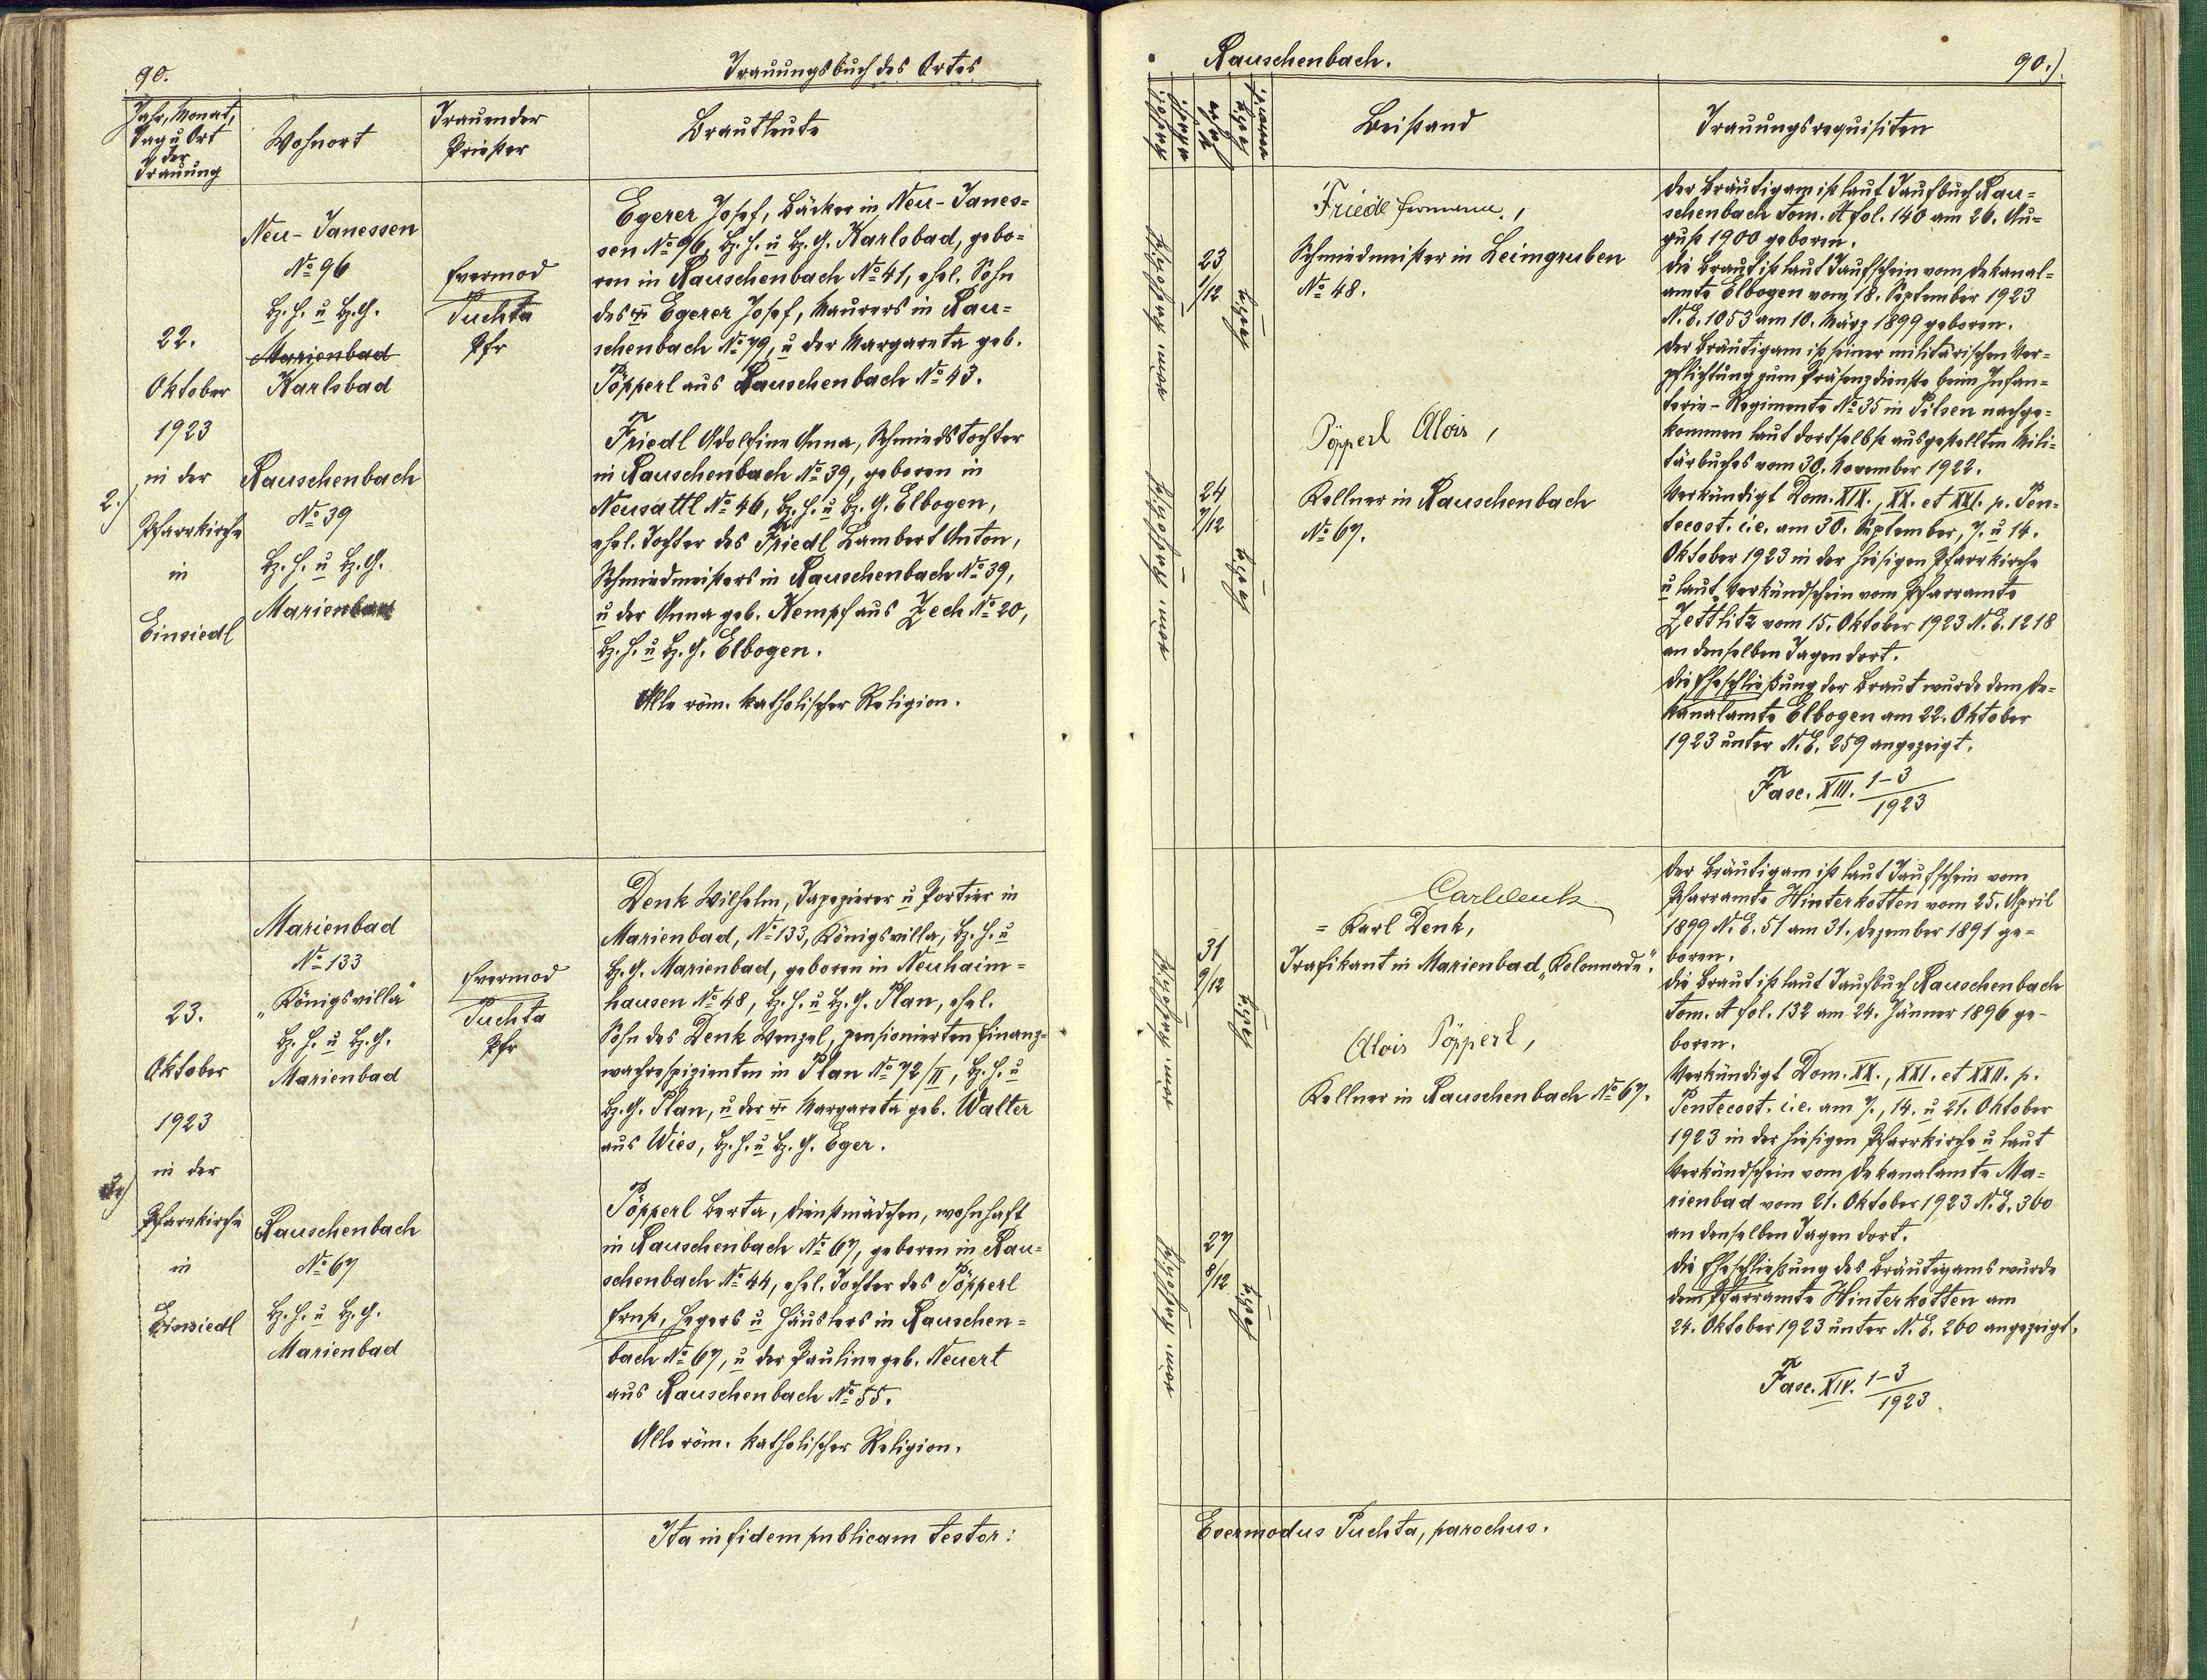 90.
Trauungsbuch des Ortes
Jahr, Monat,
Tag u Ort
der
Trauung
Wohnort
Trauender
Priester
Brautleute
22.
Oktober
1923
in der
2.)
Pfarrkirche
in
Einsiedl
Neu-Janessen
No 96
Bz. H. u Bz. G.
Marienbad
Karlsbad
Rauschenbach
No 39
Bz. H. u Bz. G.
Marienbad
Evermod
Puchta
Pfr
Egerer Josef, Bäcker in Neu-Janes=
sen No 96, Bz. H. u Bz. G. Karlsbad, gebo=
ren in Rauschenbach No 41, ehel. Sohn
des Egerer Josef, Maurers in Rau=
schenbach No 79, u der Margareta geb.
Pöpperl aus Rauschenbach No 43.
Friedl Adolfine Anna, Schmiedstochter
in Rauschenbach No 39, geboren in
Neusattl No 46, Bz. H. u Bz. G. Elbogen,
ehel. Tochter des Friedl Lambert Anton,
Schmiedmeisters in Rauschenbach No 39,
u der Anna geb. Kempf aus Zech No 20,
Bz. H. u Bz. G. Elbogen.
Alle röm. katholischer Religion.
23.
Oktober
1923
in der
3.)
Pfarrkirche
in
Einsiedl
Marienbad
No 133
„Königsvilla"
Bz. H. u Bz. G.
Marienbad
Rauschenbach
No 67
Bz. H. u Bz. G.
Marienbad
Evermod
Puchta
Pfr
Denk Wilhelm, Tapezierer u Portier in
Marienbad, No 133, Königsvilla, Bz. H. u
Bz. G. Marienbad, geboren in Neuhaim=
hausen No 48, Bz. H. u Bz. G. Plan, ehel.
Sohn des Denk Wenzel, pensionierten Finanz=
wachrespizienten in Plan No 72/II, Bz. H. u
Bz. G. Plan, u der Margareta geb. Walter
aus Wies, Bz. H. u Bz. G. Eger.
Pöpperl Berta, Dienstmädchen, wohnhaft
in Rauschenbach No 67, geboren in Rau=
schenbach No 44, ehel. Tochter des Pöpperl
Ernst, Hegers u Häuslers in Rauschen=
bach No 67, u der Pauline geb. Neuert
aus Rauschenbach No 55.
Alle röm. katholischer Religion.
Ita in fidem publicam testor:
Rauschenbach.
90.)
Beistand
Trauungsrequisiten
röm. katholisch
23
1/12
ledig
röm. katholisch
24
7/12
ledig
Friedl Hermann,
Schmiedmeister in Leimgruben
No 48.
Pöpperl Alois,
Kellner in Rauschenbach
No 67.
Der Bräutigam ist laut Taufbuch Rau=
schenbach Tom. A fol. 140 am 26. Au=
gust 1900 geboren.
Die Braut ist laut Taufschein vom Dekanal=
amte Elbogen vom 18. September 1923
N. E. 1053 am 10. März 1899 geboren.
Der Bräutigam ist seiner militärischen Ver=
pflichtung zum Präsenzdienste beim Infan=
terie-Regimente No 35 in Pilsen nachge=
kommen laut dortselbst ausgestellten Mili=
tärbuches vom 30. November 1922.
Verkündigt Dom. XIX., XX. et XXI. p. Pen=
tecost. i. e. am 30. September, 7. u 14.
Oktober 1923 in der hiesigen Pfarrkirche
u laut Verkündschein vom Pfarramte
Zettlitz vom 15. Oktober 1923 N. E. 1218
an denselben Tagen dort.
Die Eheschließung der Braut wurde dem De=
kanalamte Elbogen am 22. Oktober
1923 unter N. E. 259 angezeigt.
Fasc. XIII. 1-3/1923
röm. katholisch
31
9/12
ledig
röm. katholisch
27
8/12
ledig
Carl Denk
= Karl Denk,
Trafikant in Marienbad „Kolonnade".
Alois Pöpperl,
Kellner in Rauschenbach No 67.
Der Bräutigam ist laut Taufschein vom
Pfarramte Hinterkotten vom 25. April
1899 N. E. 51 am 31. Dezember 1891 ge=
boren.
Die Braut ist laut Taufbuch Rauschenbach
Tom. A fol. 132 am 24. Jänner 1896 ge-
boren.
Verkündigt Dom. XX., XXI. et XXII. p.
Pentecost. i. e. am 7., 14. u 21. Oktober
1923 in der hiesigen Pfarrkirche u laut
Verkündschein vom Dekanalamte Ma=
rienbad vom 21. Oktober 1923 N. E. 360
an denselben Tagen dort.
Die Eheschließung des Bräutigams wurde
dem Pfarramte Hinterkotten am
24. Oktober 1923 unter N. E. 260 angezeigt.
Fasc. XIV. 1-3/1923
Evermodus Puchta, parochus.